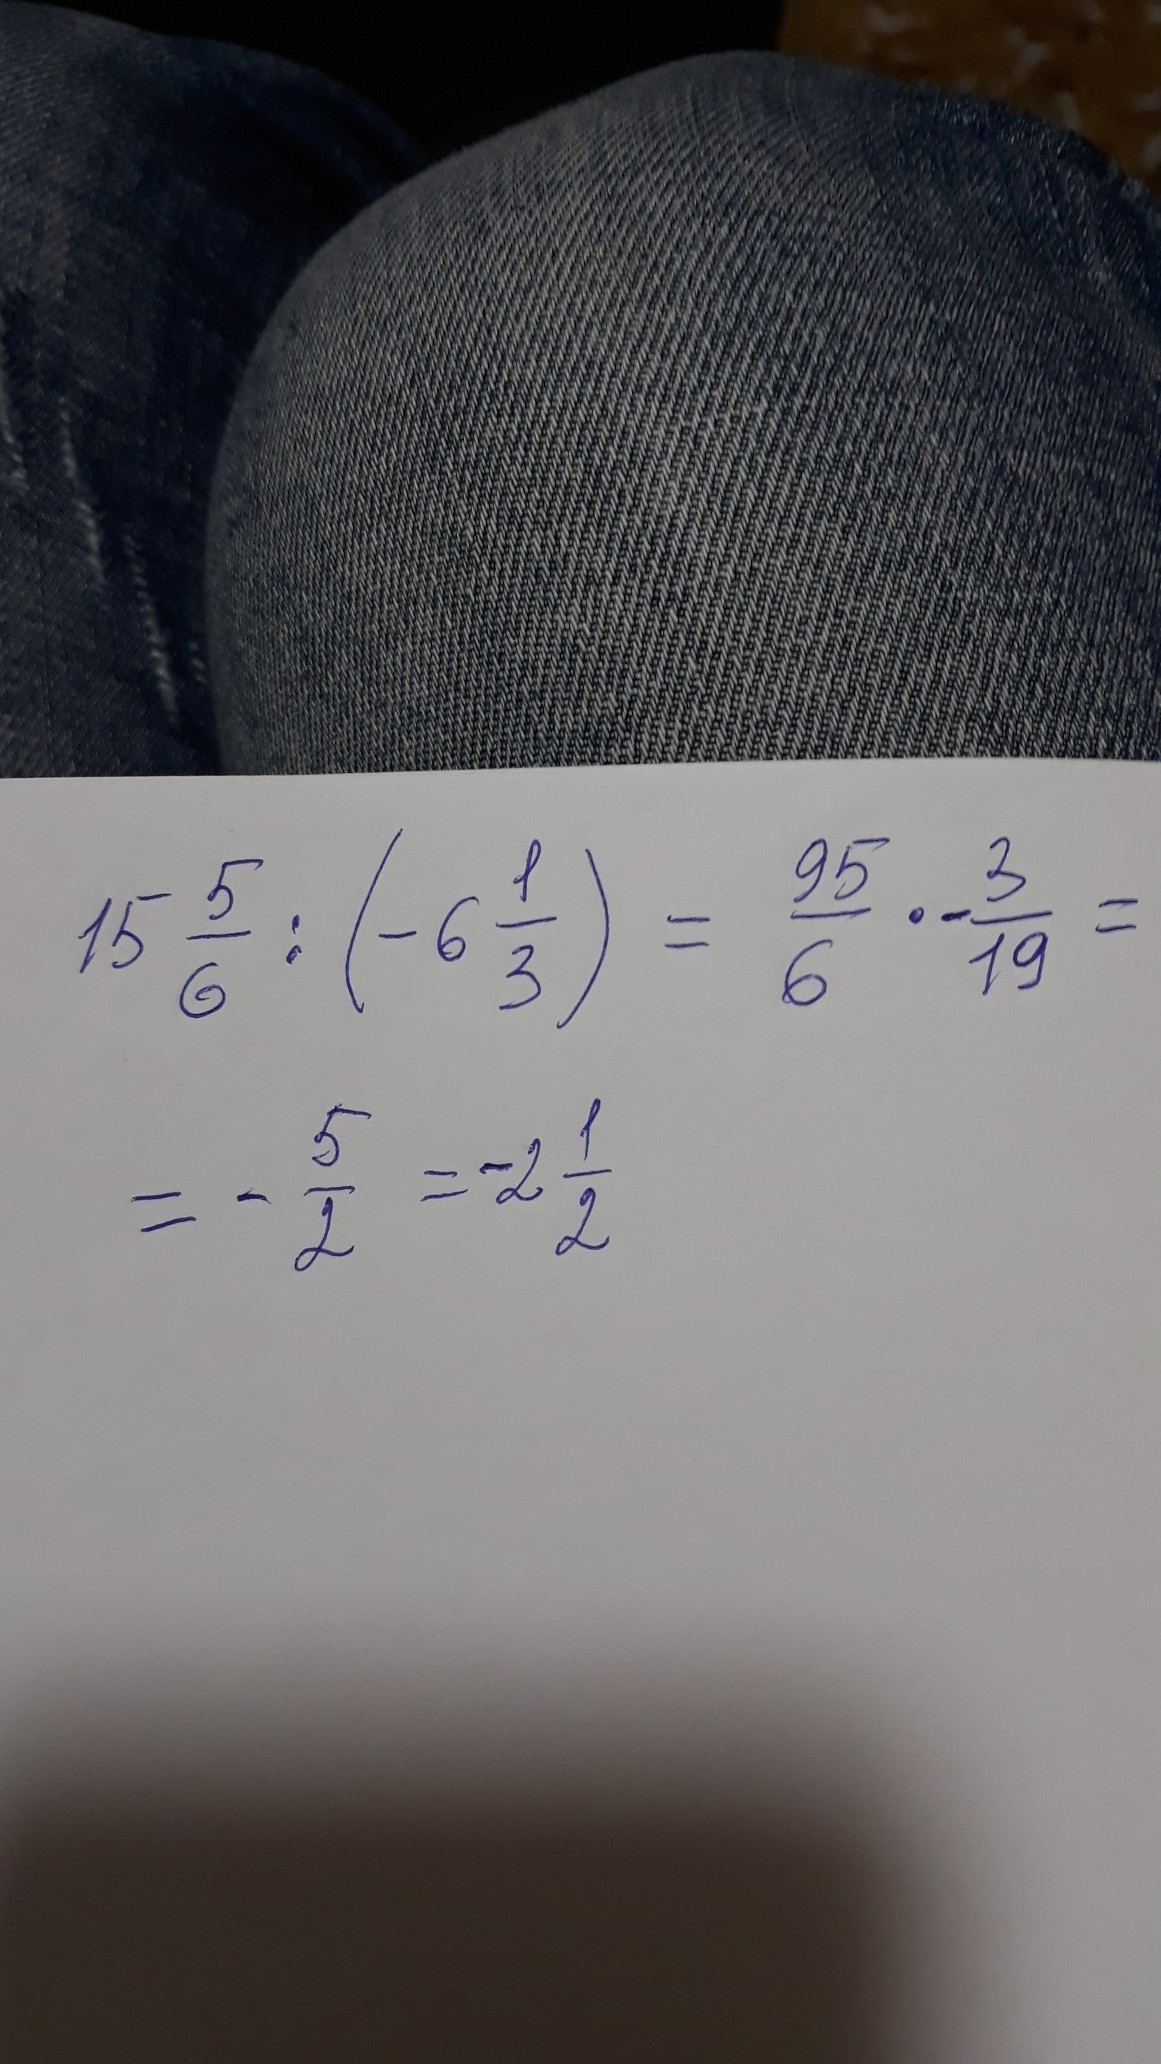 15 5/6 : (-6 1/3) = 95/6 · - 3/19 =
= - 5/2 = -2 1/2